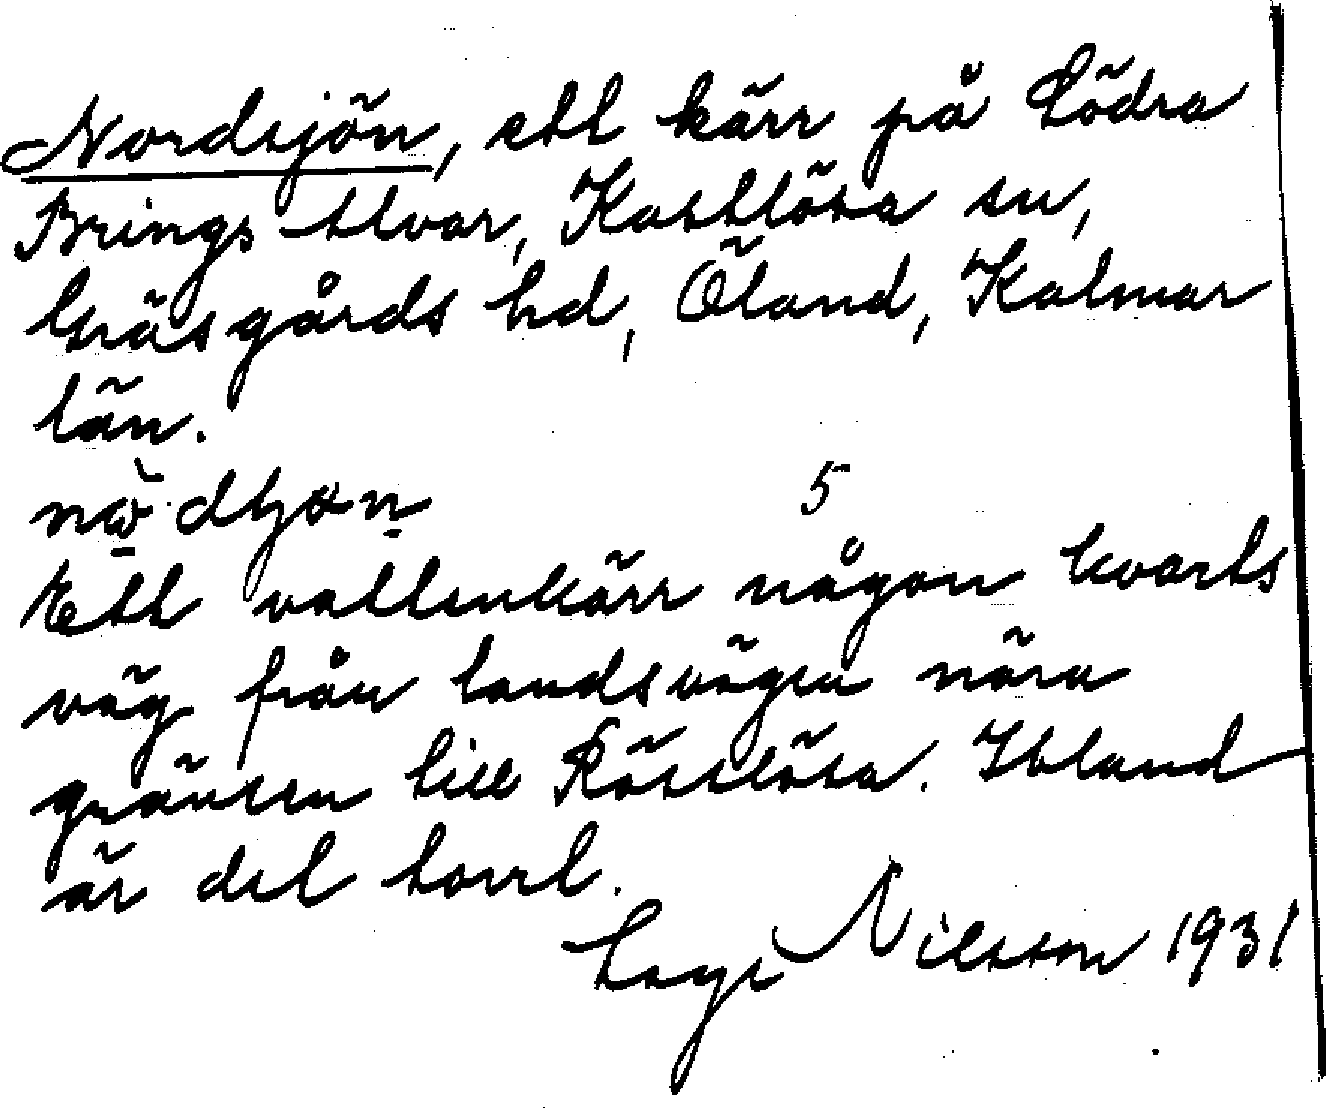 Nordsjön, ett kärr på Södra
Brings alvar, Kastlösa sn,
Gräsgårds hd, Öland, Kalmar
län.
5
Ett vattenkärr någon kvarts
väg från landsvägen nära
gränsen till Röstlösa. Ibland
är det torrt.
Nilsson 1931